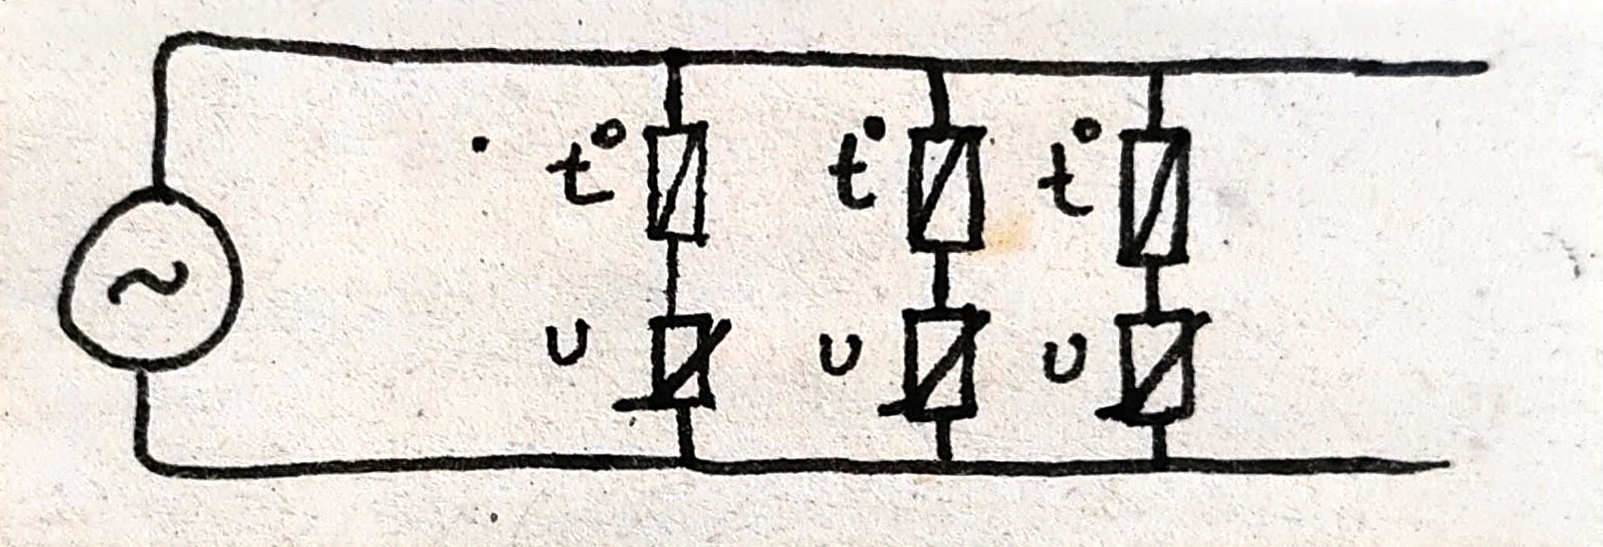 ~
t° t° t°
U U U